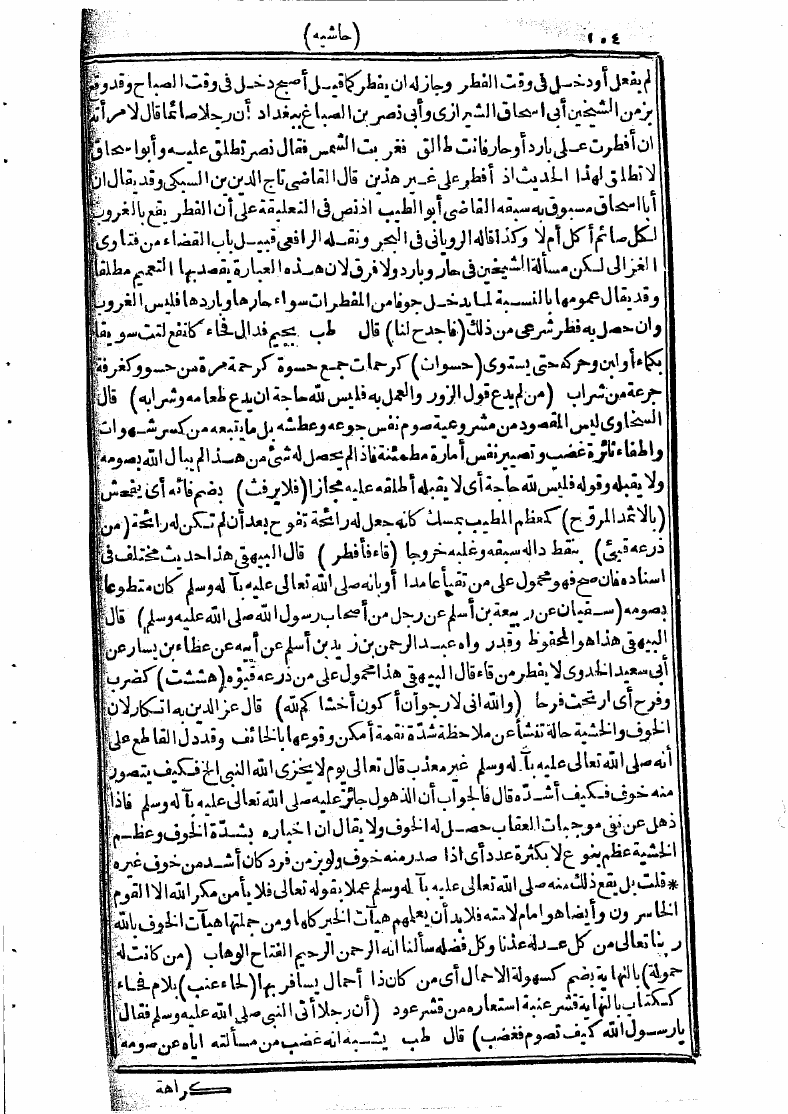 ١٠٤
(حاشيه)
لم يفعل أو دخل فى وقت الفطر وجاز له ان يفطر كما قيل أصبح دخل فى وقت الصباح وقد وقع
بزمن الشيخين أبى اسحاق الشيرازى وأبى نصر بن الصباغ ببغداد أن رجلا صائما قال لامرأته
ان أفطرت على بارد أو حار فانت طالق فغربت الشمس فقال نصر تطلق عليه وأبو اسحاق
لا تطلق لهذا الحديث اذ أفطر على غير هذين قال القاضى تاج الدين بن السبكى وقد يقال ان
أبا اسحاق مسبوق به سبقه القاضى أبو الطيب اذ نص فى التعليقة على أن الفطر يقع بالغروب
لكل صائم أكل أم لا وكذا قاله الرويانى فى البحر ونقله الرافعى قبيل باب القضاء من فتاوى
الغزالى لكن مسألة الشيخين فى حار وبارد ولا فرق لان هذه العبارة يقصد بها التعميم مطلقا
وقد يقال عمومها بالنسبة لما يدخل جوفا من المفطرات سواء حارها وباردها فليس الغروب
وان حصل به فطر شرعى من ذلك (فاجدح لنا) قال طب بجيم فدال فحاء كانفع لتت سويقا
بكماء أو لبن وحركه حتى يستوى (حسوات) كرحمات جمع حسوة كرحمة مرة من حسو وكغرفة
جرعة من شراب (من لم يدع قول الزور والعمل به فليس لله حاجة ان يدع طعامه وشرابه) قال
السخاوى ليس المقصود من مشروعية صوم نفس جوعه وعطشه بل ما يتبعه من كسر شهوات
واطفاء نائرة غضب وتصيير نفس أمارة مطمئنة فاذا لم يحصل له شئ من هذا لم يبال الله بصومه
ولا يقبله وقوله فليس لله حاجة أى لا يقبله أطلقه عليه مجازا (فلا يرفث) بضم فائه أى يفحش
(بالاثمد المروّح) كمعظم المطيب بمسك كانه جعل له رائحة تفوح بعد أن لم تكن له رائحة (من
ذرعه قيئ) بنقط داله سبقه وغلبه خروجا (قاء فأفطر) قال البيهقى هذا حديث مختلف فى
اسناده فان صح فهو محمول على من تقيأ عامدا أو بانه صلى الله تعالى عليه بآله وسلم كان متطوعا
بصومه (سفيان عن ربيعة بن أسلم عن رجل من أصحاب رسول الله صلى الله عليه وسلم) قال
البيهقى هذا هو المحفوظ وقد رواه عبد الرحمن بن زيد بن أسلم عن أبيه عن عطاء بن يسار عن
أبى سعيد الخدرى لا يفطر من قاء قال البيهقى هذا محمول على من ذرعه قيؤه (هششت) كضرب
وفرح أى ارتحت فرحا (والله انى لارجو أن أكون أخشاكم لله) قال عز الدين به اشكار لان
الخوف والخشية حالة تنشأ عن ملاحظة شدة نقمة أمكن وقوعها بالخائف وقد دل القاطع على
أنه صلى الله تعالى عليه بآله وسلم غير معذب قال تعالى يوم لا يخزى الله النبى الخ فكيف يتصور
منه خوف فكيف أشده قال فالجواب أن الذهول جائز عليه صلى الله تعالى عليه بآله وسلم فاذا
ذهل عن نفى موجبات العقاب حصل له الخوف ولا يقال ان اخباره بشدة الخوف وعظم
الخشية عظم بنوع لا بكثرة عدد أى اذا صدر منه خوف ولو بزمن فرد كان أشد من خوف غيره
*قلت بل يقع ذلك منه صلى الله تعالى عليه بآله وسلم عملا بقوله تعالى فلا يأمن مكر الله الا القوم
الخاسرون وأيضا هو امام لامته فلا بد أن يعلمهم هيآت الخير كلها ومن جملتها هيآت الخوف بالله
ربنا تعالى من كل عدله عذنا وكل فضله سألنا انه الرحمن الرحيم الفتاح الوهاب (من كانت له
حمولة) بالنهاية بضم كسهولة الاحمال أى من كان ذا أحمال يسافر بها (لحاء عنب) بلام فحاء
ككتاب بالنهاية قشر عنبة استعاره من قشر عود (أن رجلا أتى النبى صلى الله عليه وسلم فقال
يا رسول الله كيف تصوم فغضب) قال طب يشبه انه غضب من مسألته اياه عن صومه
كراهة